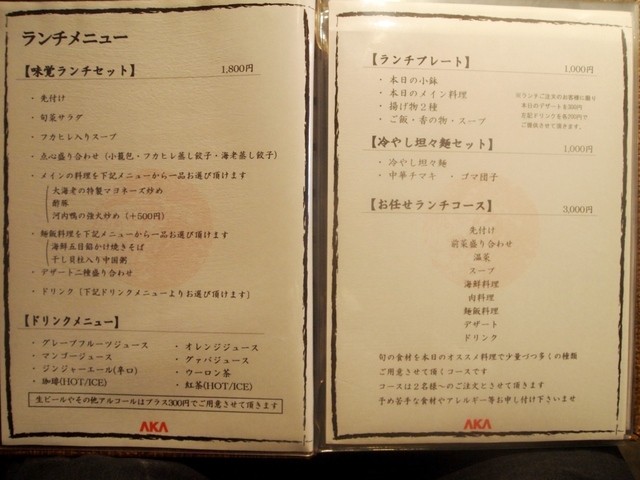 ランチメニュー
【味覚ランチセット】 1,800円
・先付け
・旬菜サラダ
・フカヒレ入りスープ
・点心盛り合わせ（小籠包・フカヒレ蒸し餃子・海老蒸し餃子）
・メインの料理を下記メニューから一品お選び頂けます
大海老の特製マヨネーズ炒め
酢豚
河内鴨の強火炒め（＋500円）
・麺飯料理を下記メニューから一品お選び頂けます
海鮮五目餡かけ焼きそば
干し貝柱入り中国粥
・デザート二種盛り合わせ
・ドリンク（下記ドリンクメニューよりお選び頂けます）
【ドリンクメニュー】
・グレープフルーツジュース ・オレンジジュース
・マンゴージュース ・グァバジュース
・ジンジャーエール(辛口) ・ウーロン茶
・珈琲(HOT/ICE) ・紅茶(HOT/ICE)
生ビールやその他アルコールはプラス300円でご用意させて頂きます
AKA
【ランチプレート】 1,000円
・本日の小鉢
・本日のメイン料理
・揚げ物２種
・ご飯・香の物・スープ
※ランチご注文のお客様に限り
本日のデザートを300円
左記ドリンクを各200円で
ご提供させて頂きます。
【冷やし坦々麺セット】 1,000円
・冷やし坦々麺
・中華チマキ ・ゴマ団子
【お任せランチコース】 3,000円
先付け
前菜盛り合わせ
温菜
スープ
海鮮料理
肉料理
麺飯料理
デザート
ドリンク
旬の食材を本日のオススメ料理で少量づつ多くの種類
ご用意させて頂くコースです
コースは２名様へのご注文とさせて頂きます
予め苦手な食材やアレルギー等お申し付け下さいませ
AKA